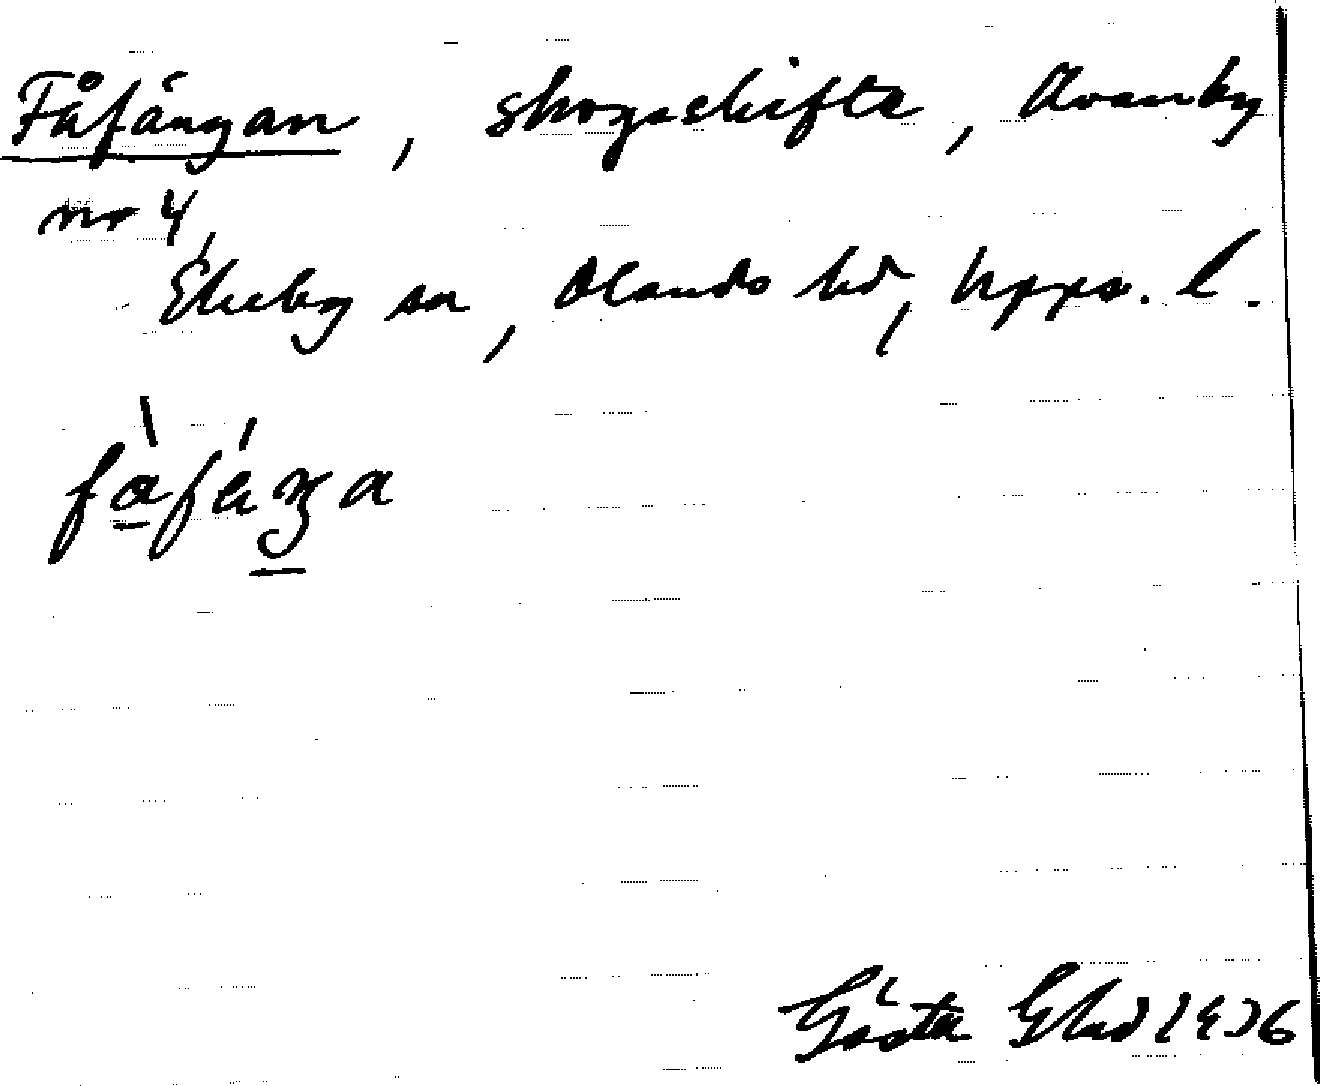 Fåfängan, skogsskifte, Avanby
nr 4,
Ekeby sn, Olands hd, Upps. l.
Gösta Ehd 1936